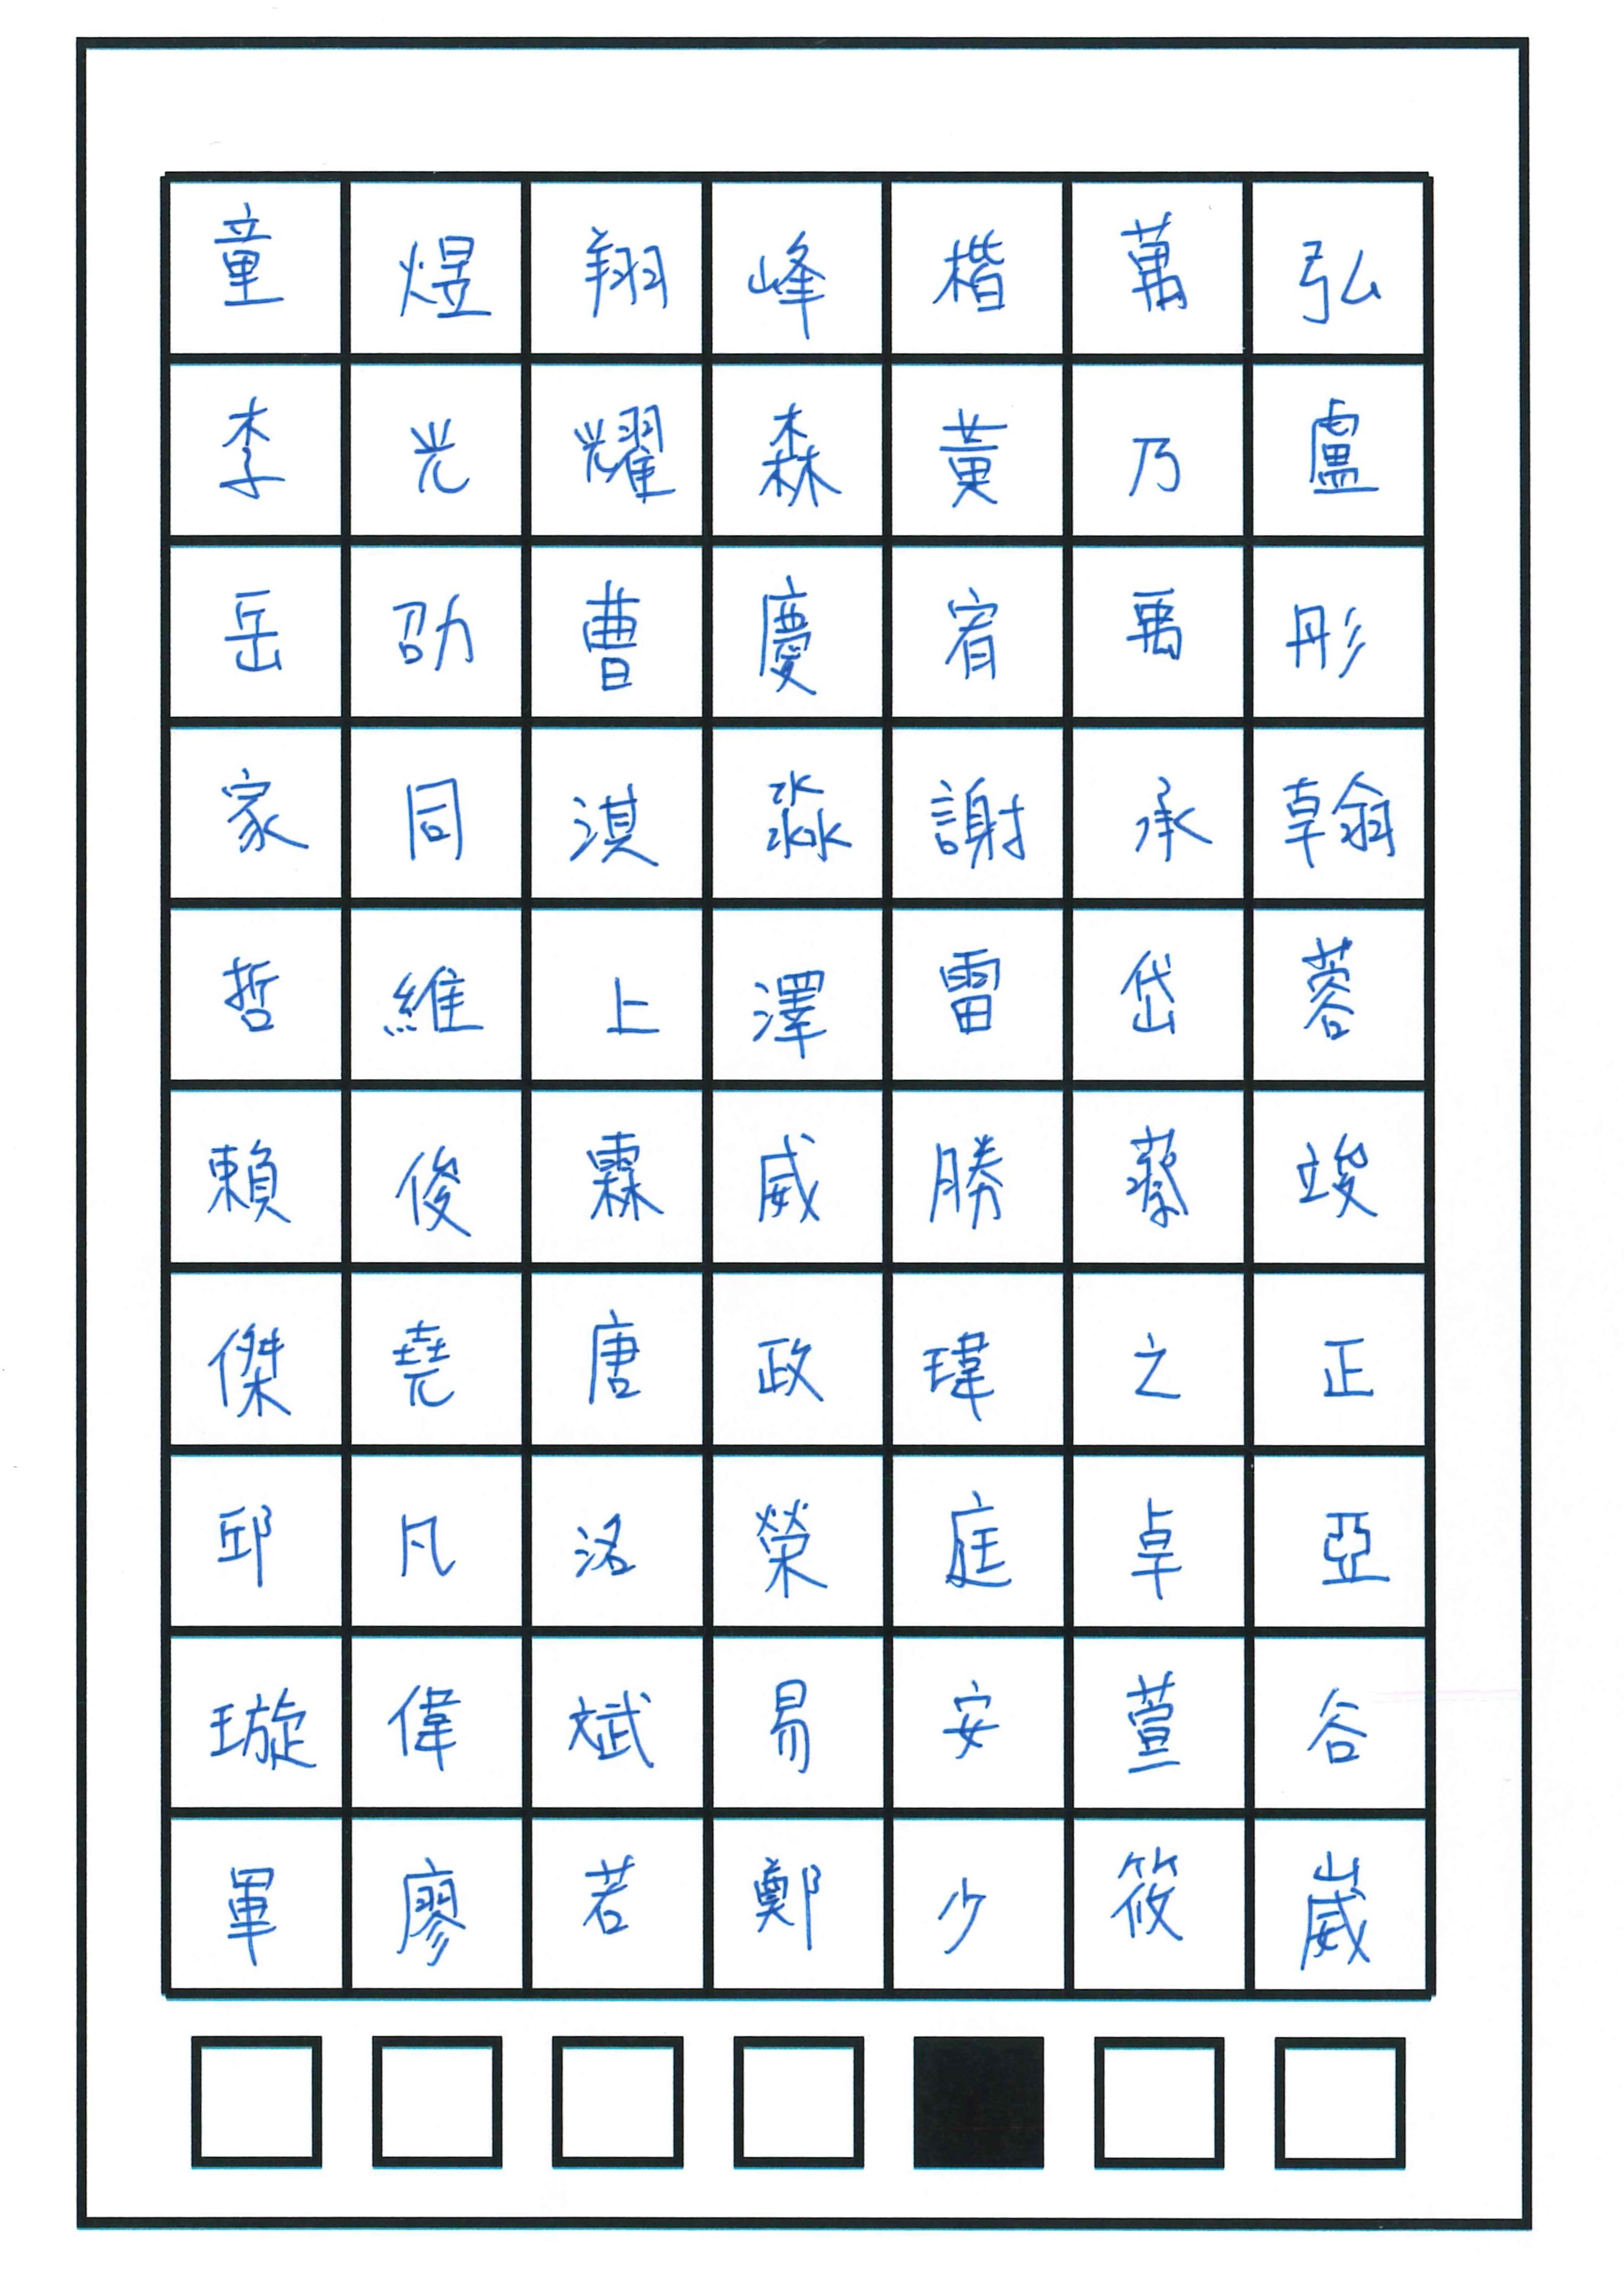 童煜翔峰楷萬弘
李光耀森黃乃盧
岳劭曹慶宥禹彤
家同淇淼謝承翰
哲維上澤雷岱蓉
賴俊霖威勝蔡竣
傑堯唐政瑋之正
邱凡洺榮庭卓亞
璇偉斌易安萱谷
軍廖若鄭少筱崴